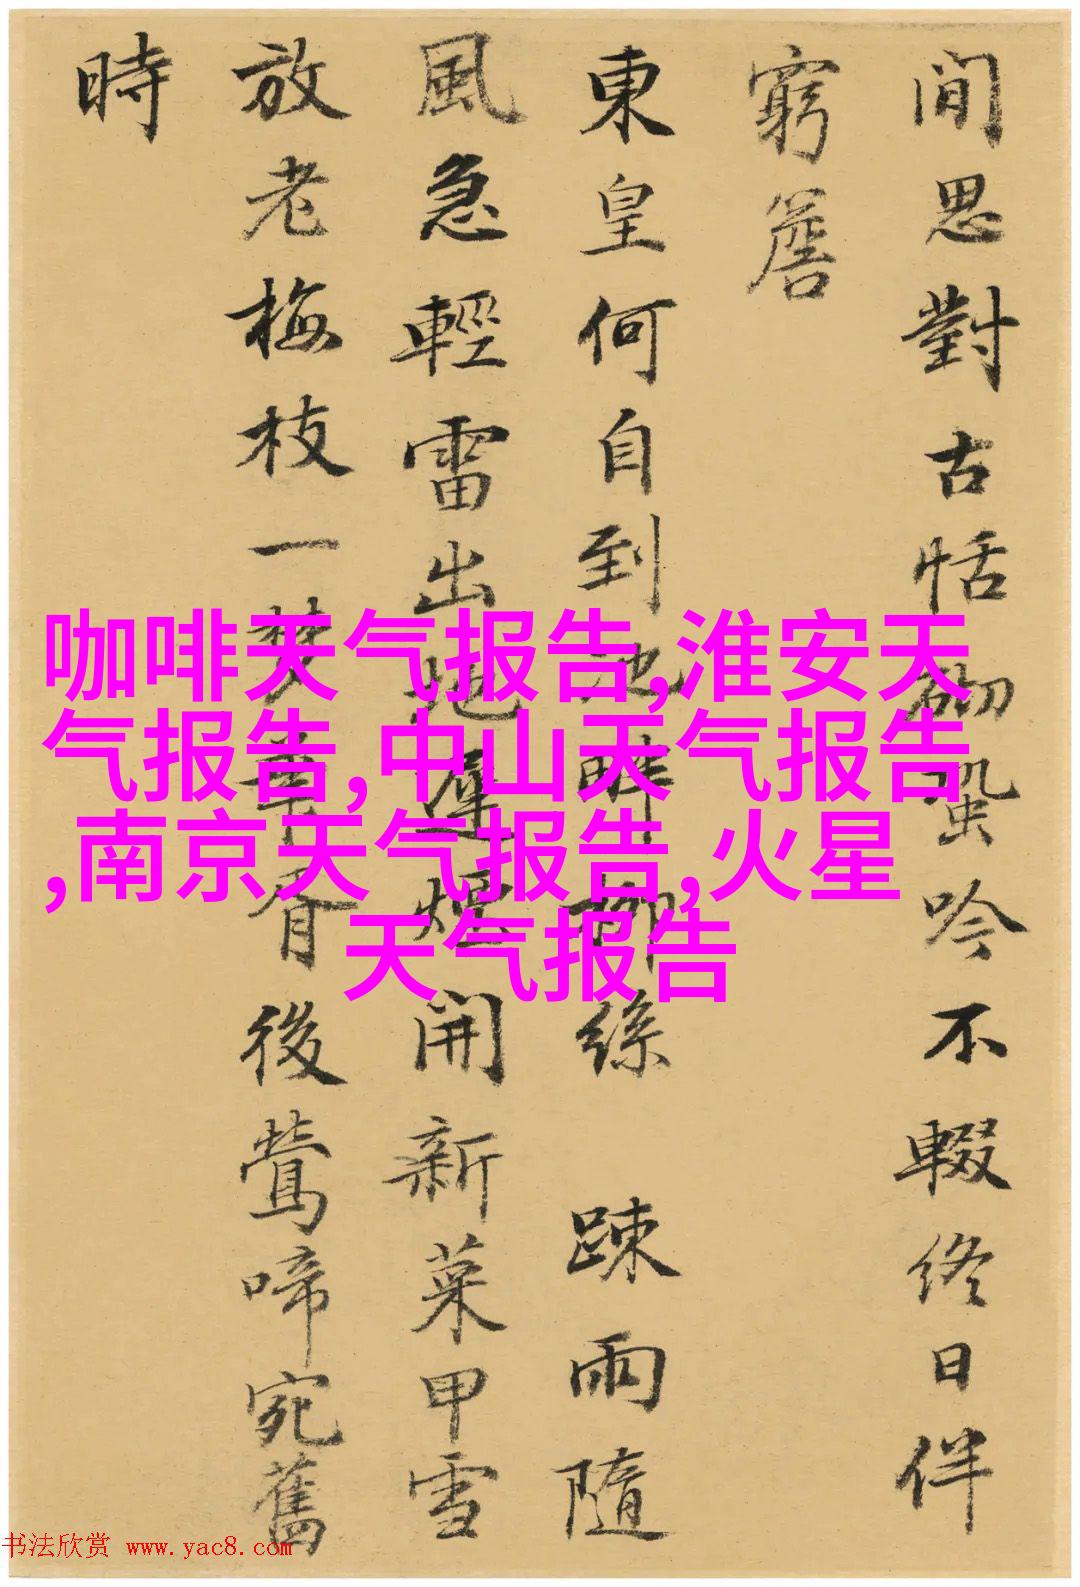 間思對古恬砌蛩吟不輟終日伴
窮簷
東皇何自到池畔柳絲 踈雨隨
風急輕雷出地遲煙開新菜甲雪
放老梅枝一梦華胥後鶯啼宛舊
時
咖啡天气报告,淮安天
气报告,中山天气报告
,南京天气报告,火星
天气报告
书法欣赏 www.yac8.com